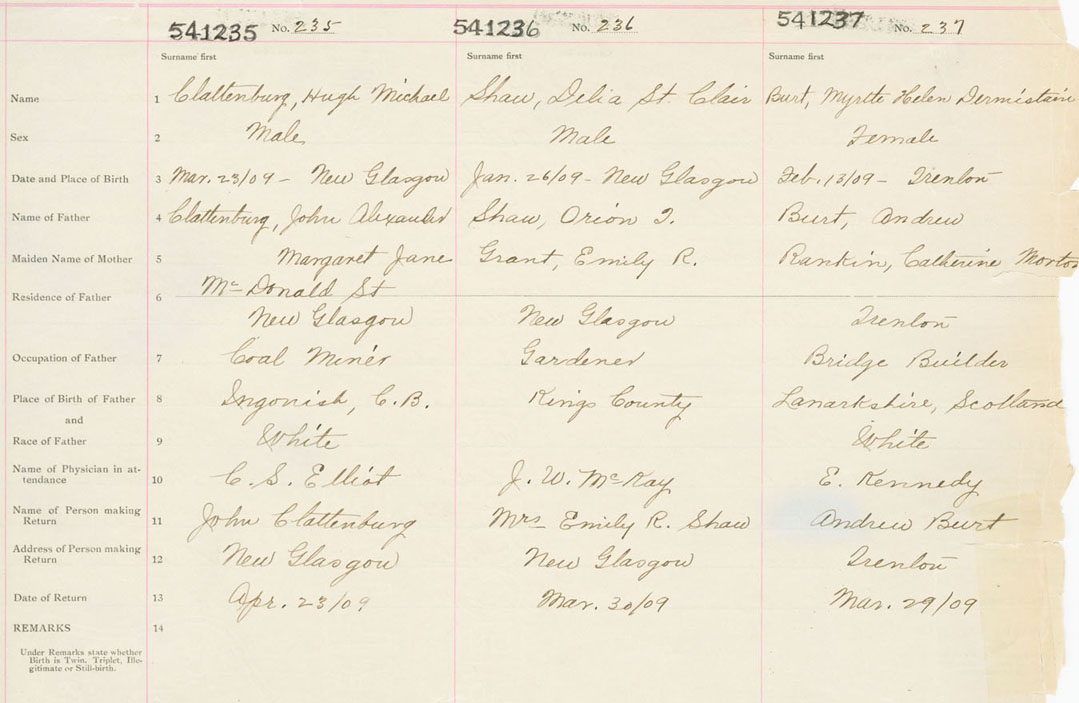 541235 No. 235 541236 No. 236 541237 No. 237
Surname first Surname first Surname first
Name 1 Clattenburg, Hugh Michael Shaw, Delia St. Clair Burt, Myrtte Helen Dermistain
Sex 2 Male Male Female
Date and Place of Birth 3 Mar. 23/09 - New Glasgow Jan. 26/09 - New Glasgow Feb. 13/09 - Trenton
Name of Father 4 Clattenburg, John Alexander Shaw, Orion T. Burt, Andrew
Maiden Name of Mother 5 Margaret Jane Grant, Emily R. Rankin, Catherine Morton
Residence of Father 6 McDonald St
New Glasgow New Glasgow Trenton
Occupation of Father 7 Coal Miner Gardener Bridge Builder
Place of Birth of Father 8 Ingonish, C.B. Kings County Lanarkshire, Scotland
and
Race of Father 9 White White
Name of Physician in at-
tendance 10 C. S. Elliot J. W. McKay E. Kennedy
Name of Person making
Return 11 John Clattenburg Mrs Emily R. Shaw Andrew Burt
Address of Person making
Return 12 New Glasgow New Glasgow Trenton
Date of Return 13 Apr. 23/09 Mar. 30/09 Mar. 29/09
REMARKS 14
Under Remarks state whether
Birth is Twin, Triplet, Ille-
gitimate or Still-birth.